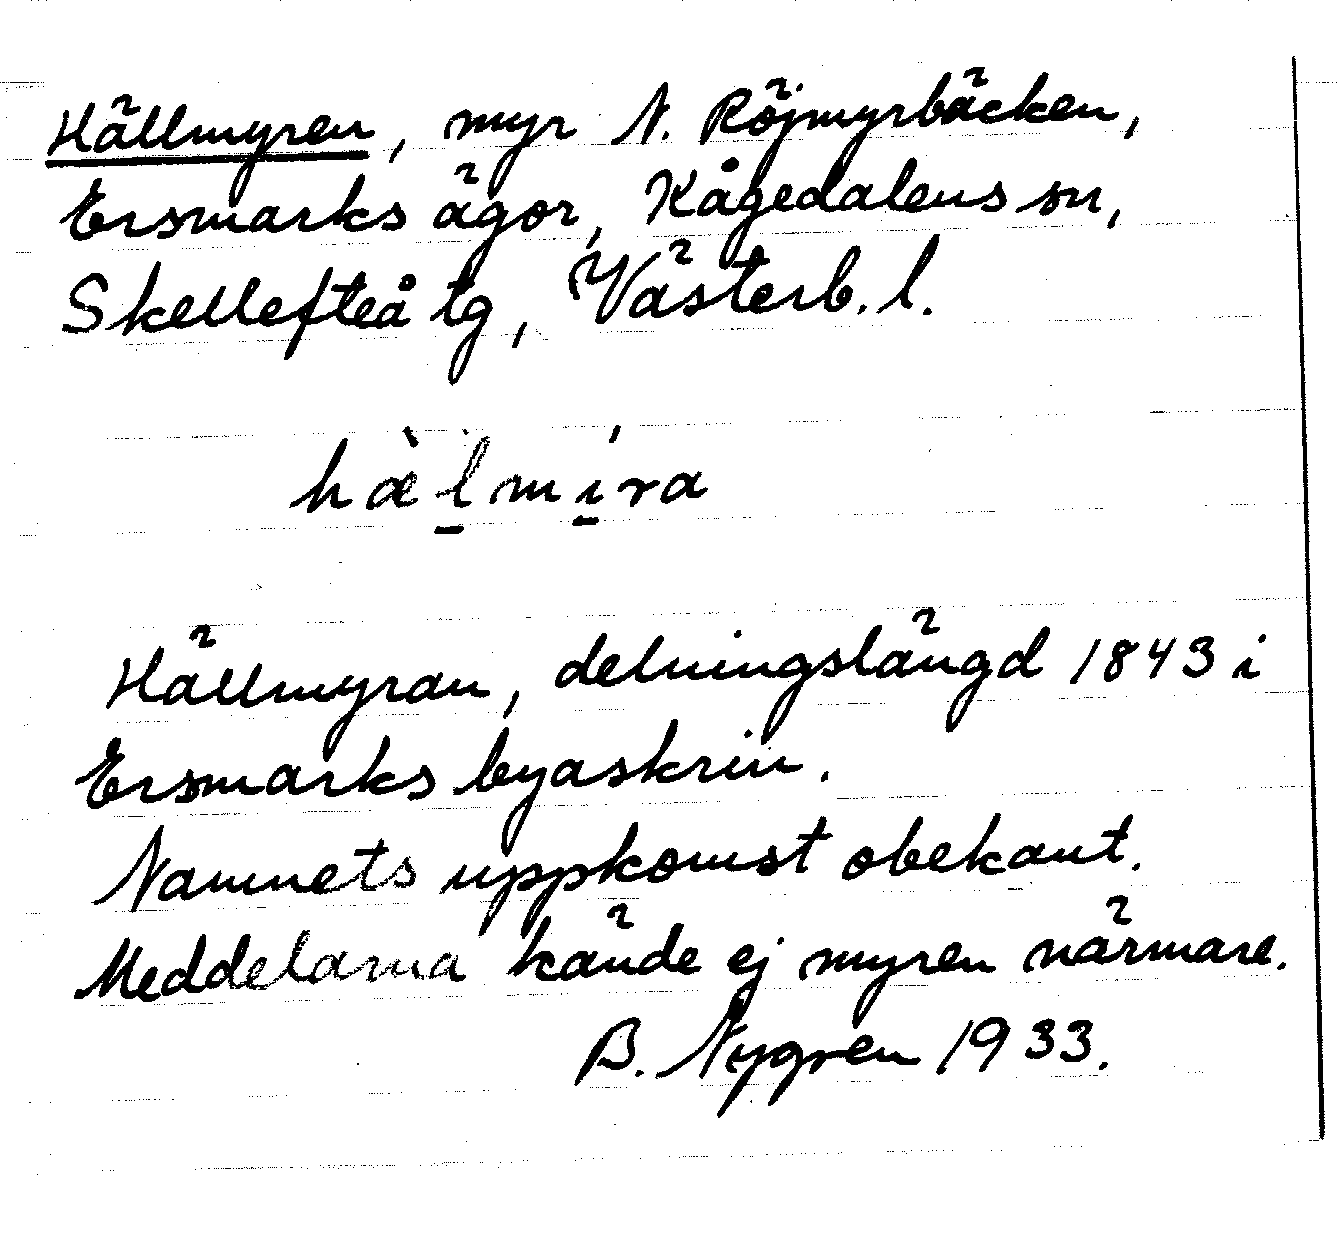 Hällmyren, myr N. Röjmyrbäcken,
Ersmarks ägor, Kågedalens sn,
Skellefteå tg, Västerb. l.
hæ̀l̠mí̠ra
Hällmyran, delningslängd 1843 i
Ersmarks byaskrin.
Namnets uppkomst obekant.
Meddelarna kände ej myren närmare.
B. Nygren 1933.